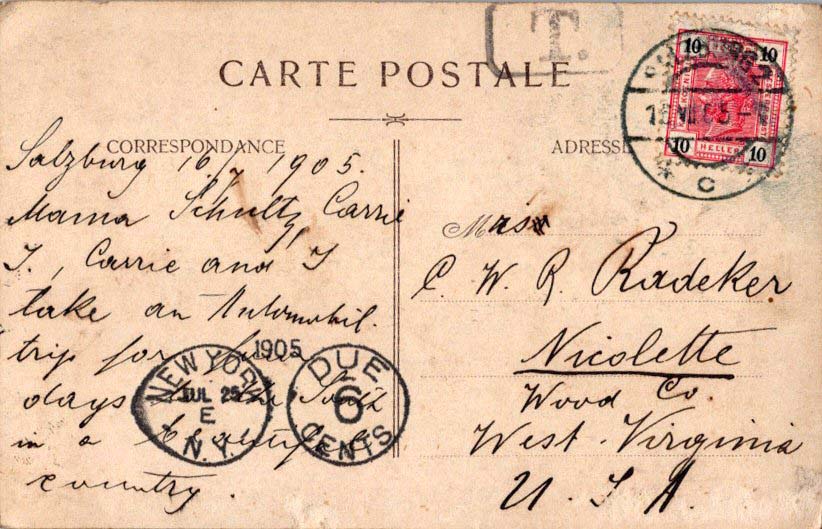 T.
CARTE POSTALE
CORRESPONDANCE
ADRESSE
10 10
HELLER
10 10
C
Salzburg 16/7 1905.
Mama Schultz, Carrie
I., Carrie and I
take an Automobil.
trip for
days to the South
in a beautiful
country.
NEW YORK
JUL 25
E
N.Y.
1905
DUE
6
CENTS
Mrs
C. W. R. Radeker
Nicolette
Wood Co.
West-Virginia
U. S. A.